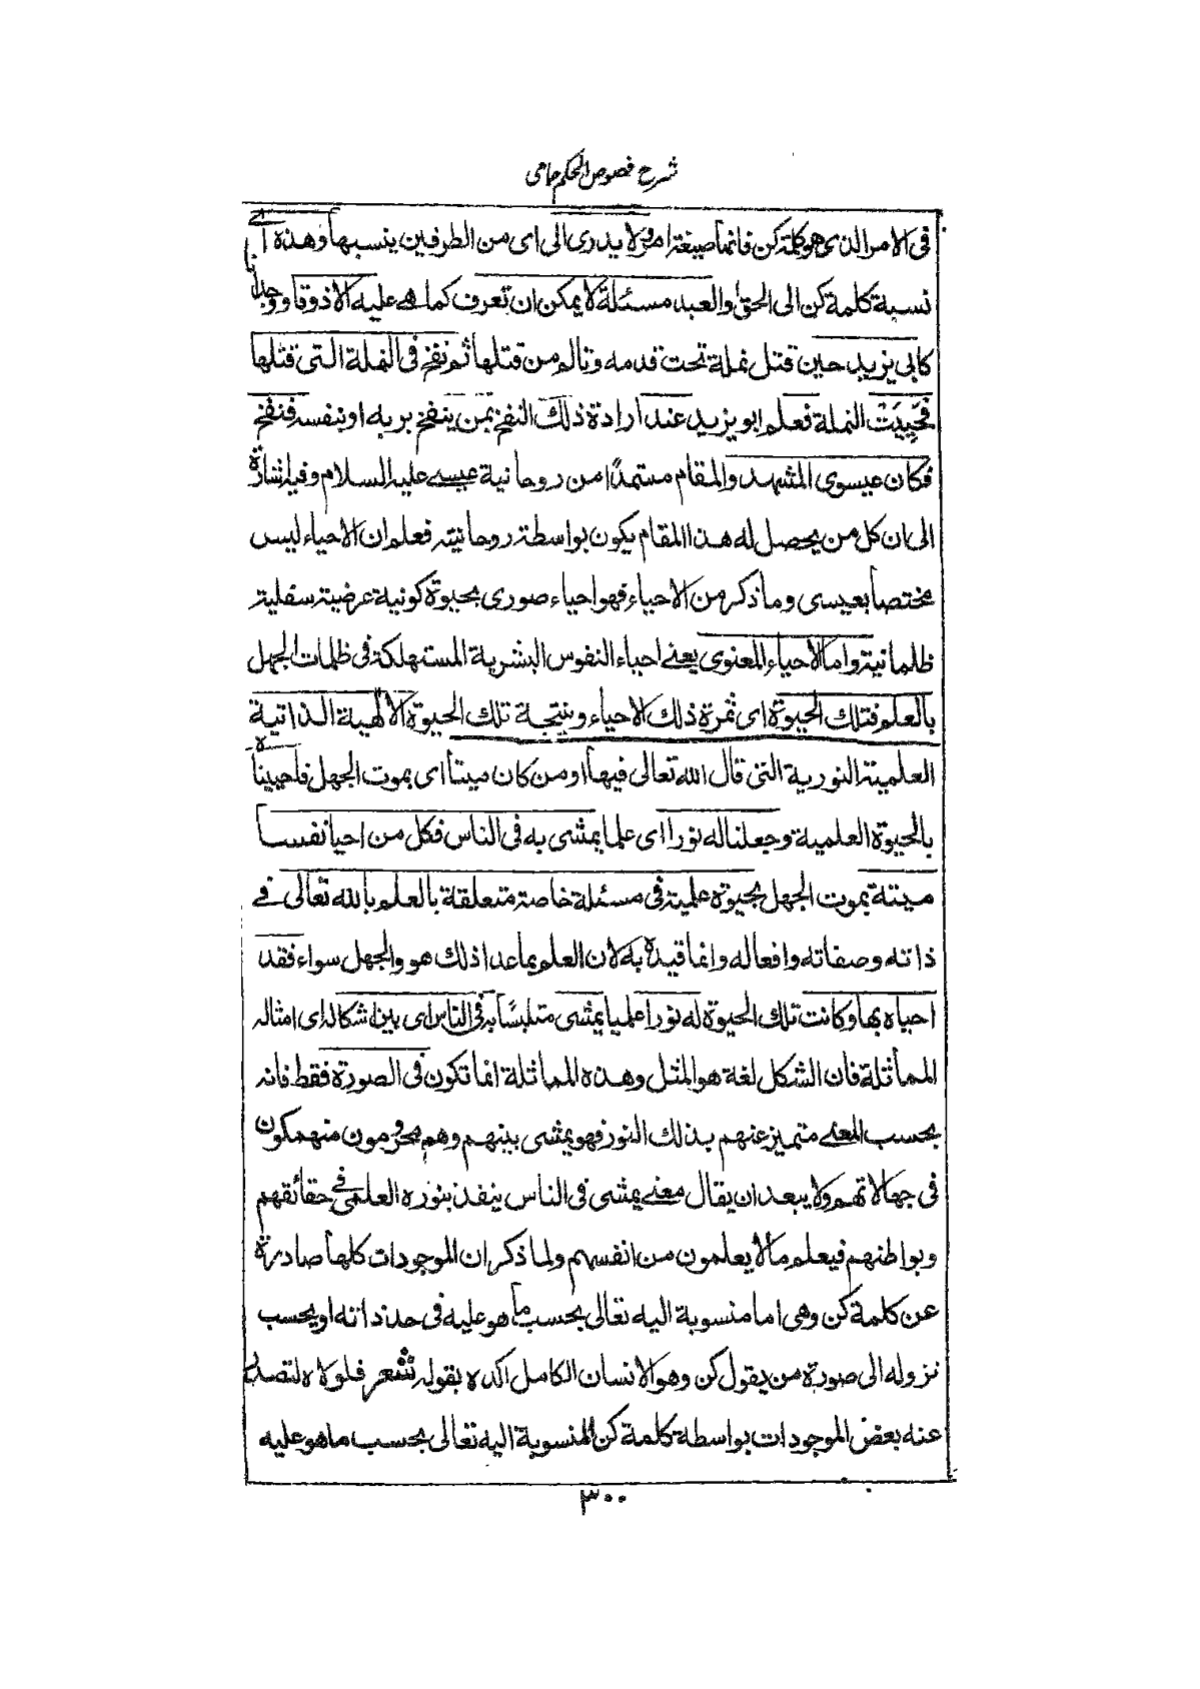 شرح فصوص الحكم جامى
فى الامر الذى هو كلمة كن فانها صيغة امر ولا يدرى الى اى من الطرفين ينسبها وهذه اى
نسبة كلمة كن الى الحق والعبد مسئلة لا يمكن ان تعرف كما هے عليه الا ذوقا ووجدانا
كابى يزيد حين قتل نملة تحت قدمه وتالم من قتلها ثم نفخ فى النملة التى قتلها
فَحَيِيَتْ النملة فعلم ابو يزيد عند ارادة ذلك النفخ بمن ينفخ بربه او بنفسه فنفخ
فكان عيسوى المشهد والمقام مستمدًا من روحانية عيسے عليه السلام وفيه اشارة
الى ان كل من يحصل له هذا المقام يكون بواسطة روحانيته فعلم ان الاحياء ليس
مختصا بعيسى وما ذكر من الاحياء فهو احياء صورى بحيوة كونية عرضية سفلية
ظلمانية واما الاحياء المعنوى يعنے احياء النفوس البشرية المستهلكة فى ظلمات الجهل
بالعلم فتلك الحيوة اى ثمرة ذلك الاحياء ونتيجة تلك الحيوة الالهية الذاتية
العلمية النورية التى قال الله تعالى فيها او من كان ميتا اى بموت الجهل فاحييناه
بالحيوة العلمية وجعلنا له نورا اى علما يمشى به فى الناس فكل من احيا نفسا
ميتة بموت الجهل بحيوة علمية فى مسئلة خاصة متعلقة بالعلم بالله تعالى فے
ذاته وصفاته وافعاله وانما قيده به لان العلم بما عدا ذلك هو والجهل سواء فقد
احياه بها وكانت تلك الحيوة له نورا علميا يمشى متلبسًا به فى الناس اى بين اشكاله اى امثاله
المماثلة فان الشكل لغة هو المثل وهذه المماثلة انما تكون فى الصورة فقط فانه
بحسب المعنے متميز عنهم بذلك النور فهو يمشى بينهم وهم محرومون منهمكون
فى جهالاتهم ولا يبعد ان يقال معنے يمشى فى الناس ينفذ بنوره العلمى فے حقائقهم
وبواطنهم فيعلم ما لا يعلمون من انفسهم ولما ذكر ان الموجودات كلها صادرة
عن كلمة كن وهى اما منسوبة اليه تعالى بحسب ما هو عليه فى حد ذاته او بحسب
نزوله الى صورة من يقول كن وهو الانسان الكامل اكده بقوله شعر فلولاه لتصدر
عنه بعض الموجودات بواسطة كلمة كن المنسوبة اليه تعالى بحسب ما هو عليه
٣٠٠